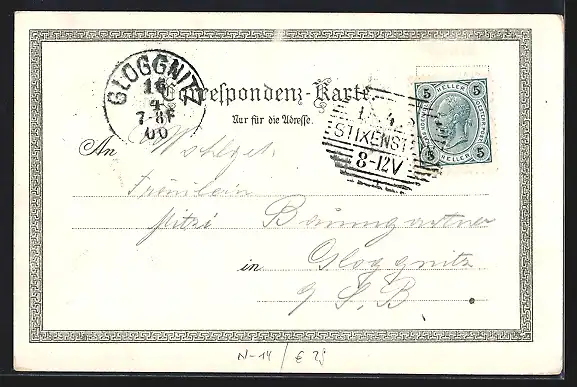 GLOGGNITZ
16
4
7-8F
00
Correspondenz-Karte.
Nur für die Adresse.
5 HELLER 5
5 HELLER 5
STIXENST
8-12V
An Wohlget.
Fräulein
Mitzi Baumgartner
in Gloggnitz
S. B.
N-14 / € 28